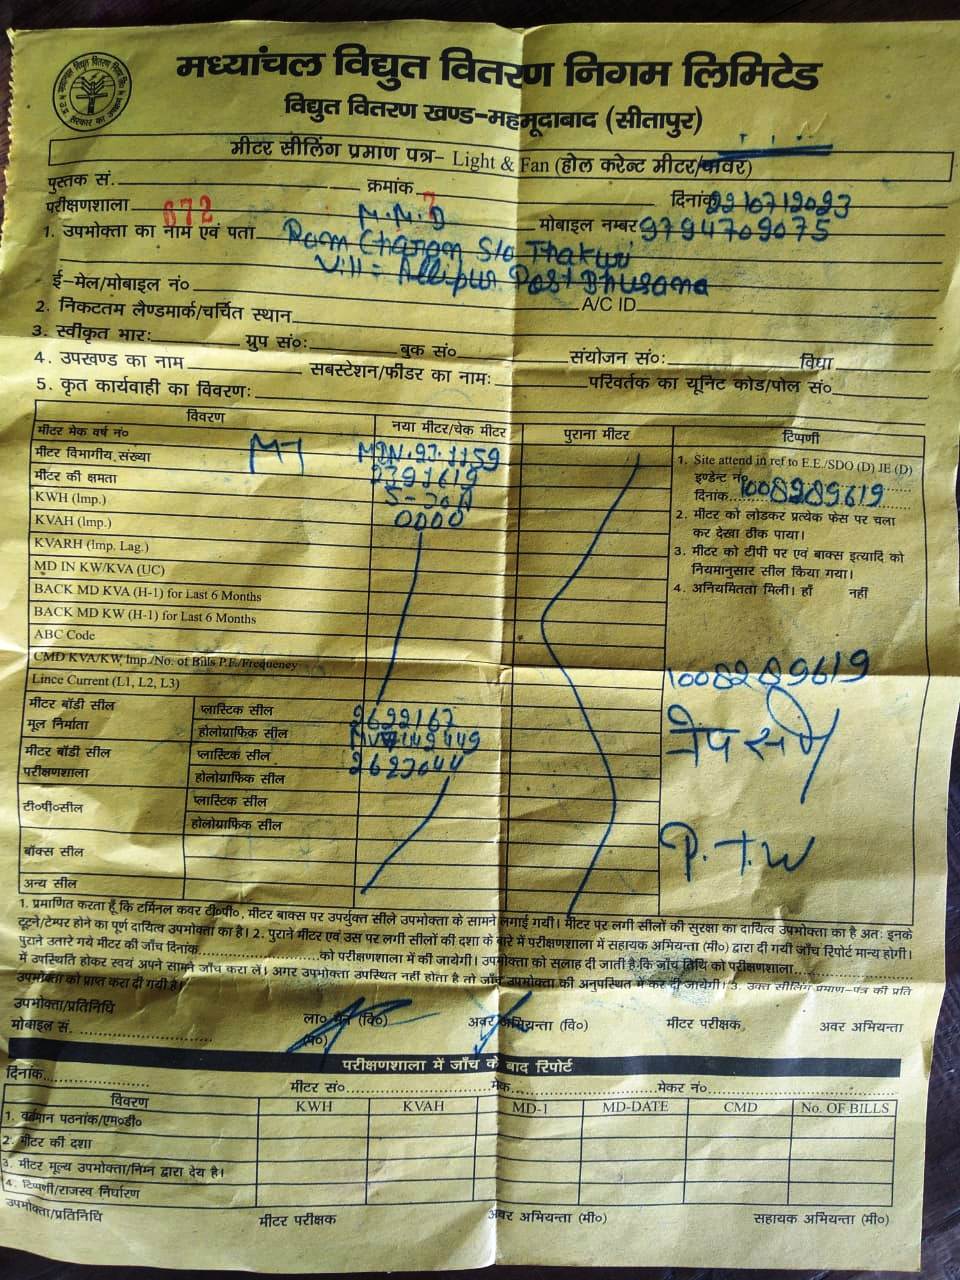 मध्यांचल विद्युत वितरण निगम लिमिटेड
विद्युत वितरण खण्ड-महमूदाबाद (सीतापुर)
मीटर सीलिंग प्रमाण पत्र- Light & Fan (होल करेन्ट मीटर/पावर)
पुस्तक सं. क्रमांक 7 दिनांक
परीक्षणशाला 672 M.M.D मोबाइल नम्बर 9794709075
1. उपभोक्ता का नाम एवं पता Ram Charan S/o Thakuri
Vill= Allipur Post Bhusana
ई-मेल/मोबाइल नं० A/C ID
2. निकटतम लैण्डमार्क/चर्चित स्थान
3. स्वीकृत भारः ग्रुप सं०ः बुक सं० संयोजन सं०ः विधा
4. उपखण्ड का नाम सबस्टेशन/फीडर का नामः परिवर्तक का यूनिट कोड/पोल सं०
5. कृत कार्यवाही का विवरणः
विवरण नया मीटर/चेक मीटर पुराना मीटर टिप्पणी
मीटर मेक वर्ष नं०
मीटर विभागीय संख्या
मीटर की क्षमता
KWH (Imp.)
KVAH (Imp.) 0000
KVARH (Imp. Lag.)
MD IN KW/KVA (UC)
BACK MD KVA (H-1) for Last 6 Months
BACK MD KW (H-1) for Last 6 Months
ABC Code
CMD KVA/KW, Imp./No. of Bills P.F./Frequency
Lince Current (L1, L2, L3)
1. Site attend in ref to E.E./SDO (D) JE (D)
इण्डेन्ट नं०
दिनांक 1008289619
2. मीटर को लोडकर प्रत्येक फेस पर चला
कर देखा ठीक पाया।
3. मीटर को टीपी पर एवं बाक्स इत्यादि को
नियमानुसार सील किया गया।
4. अनियमितता मिली। हाँ नहीं
1008289619
P.T.W
मीटर बॉडी सील
मूल निर्माता
प्लास्टिक सील 2622167
होलोग्राफिक सील
मीटर बॉडी सील
परीक्षणशाला
प्लास्टिक सील 2623044
होलोग्राफिक सील
टी०पी०सील
प्लास्टिक सील
होलोग्राफिक सील
बॉक्स सील
अन्य सील
1. प्रमाणित करता हूँ कि टर्मिनल कवर टी०पी०, मीटर बाक्स पर उपर्युक्त सीले उपभोक्ता के सामने लगाई गयी। मीटर पर लगी सीलों की सुरक्षा का दायित्व उपभोक्ता का है अतः इनके
टूटने/टेम्पर होने का पूर्ण दायित्व उपभोक्ता का है। 2. पुराने मीटर एवं उस पर लगी सीलों की दशा के बारे में परीक्षणशाला में सहायक अभियन्ता (मी०) द्वारा दी गयी जाँच रिपोर्ट मान्य होगी।
पुराने उतारे गये मीटर की जाँच दिनांक को परीक्षणशाला में की जायेगी। उपभोक्ता को सलाह दी जाती है.कि जाँच तिथि को परीक्षणशाला
में उपस्थिति होकर स्वयं अपने सामने जाँच करा लें। अगर उपभोक्ता उपस्थित नहीं होता है तो जाँच उपभोक्ता की अनुपस्थित में कर दी जायेगी। 3. उक्त सीलिंग प्रमाण-पत्र की प्रति
उपभोक्ता को प्राप्त करा दी गयी है।
उपभोक्ता/प्रतिनिधि (वि०) अवर अभियन्ता (वि०) मीटर परीक्षक, अवर अभियन्ता
मोबाइल सं.
परीक्षणशाला में जाँच के बाद रिपोर्ट
दिनांक मीटर सं० मेक मेकर नं०
विवरण KWH KVAH MD-1 MD-DATE CMD No. OF BILLS
1. वर्तमान पठनांक/एम०डी०
2. मीटर की दशा
3. मीटर मूल्य उपभोक्ता/निम्न द्वारा देय है।
4. टिप्पणी/राजस्व निर्धारण
उपभोक्ता/प्रतिनिधि मीटर परीक्षक अवर अभियन्ता (मी०) सहायक अभियन्ता (मी०)